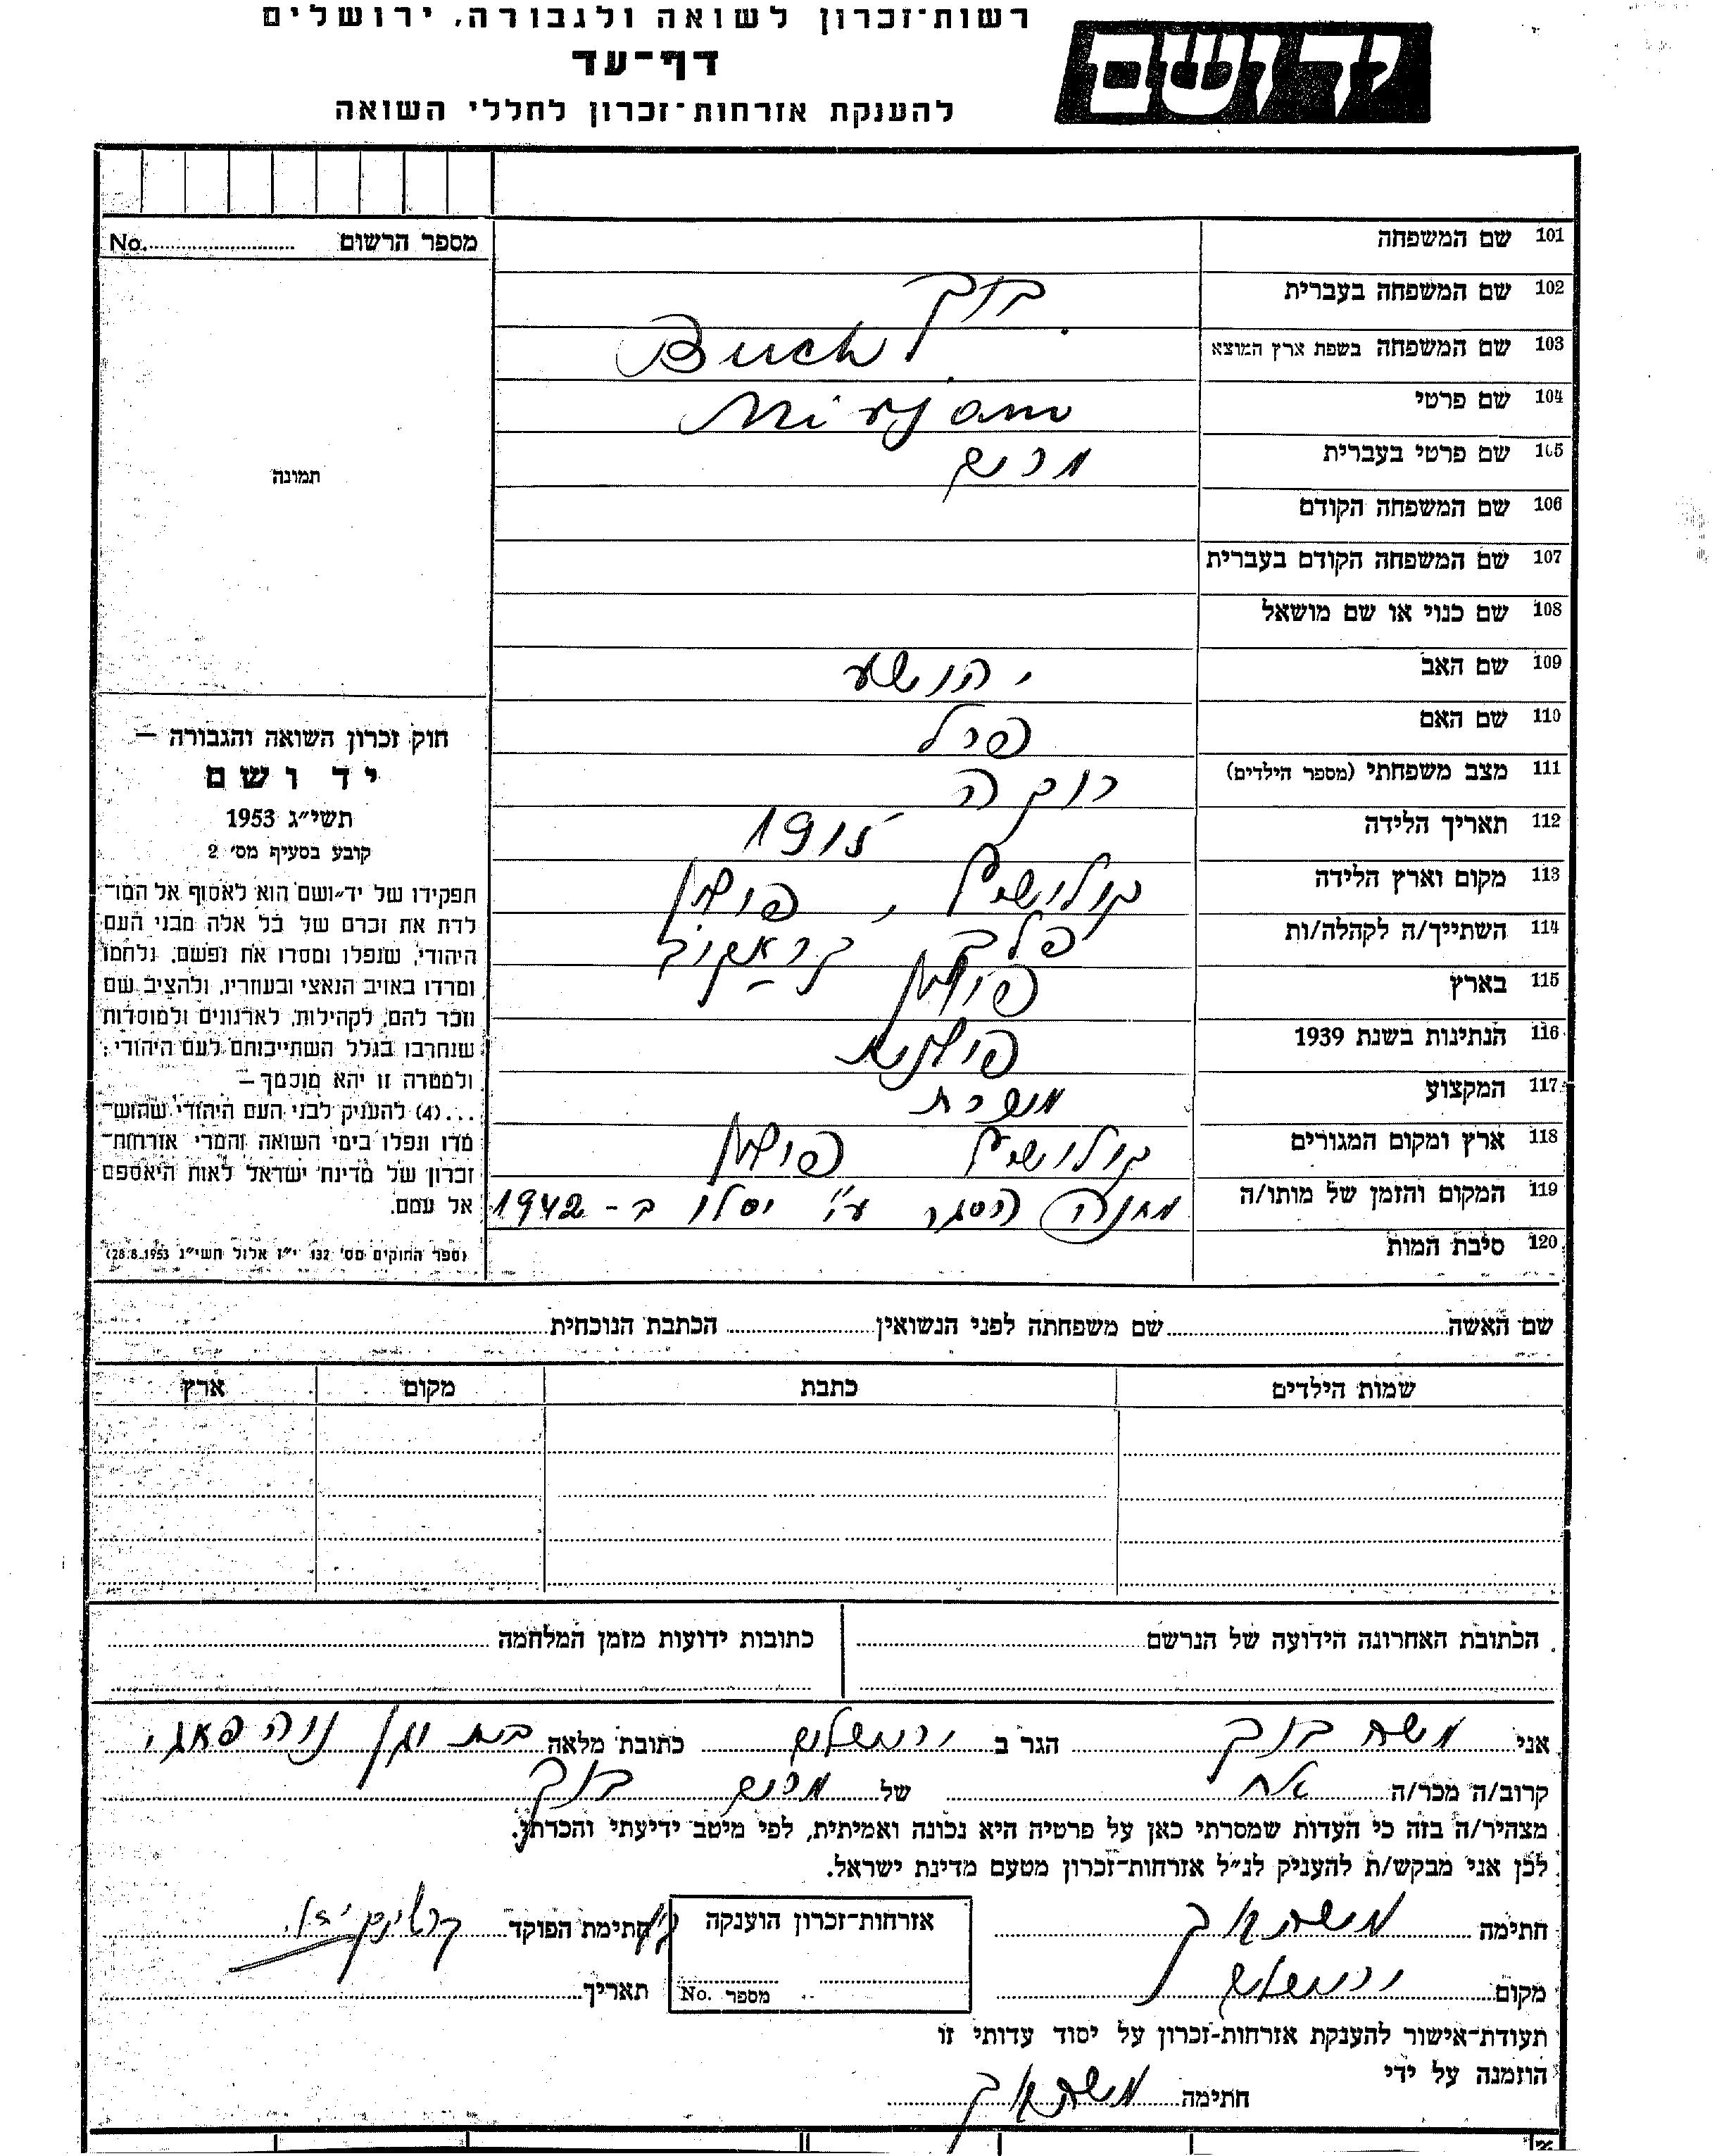 רשות־זכרון לשואה ולגבורה, ירושלים
דף־עד
להענקת אזרחות־זכרון לחללי השואה
ידושם
מספר הרשום No.
תמונה
101 שם המשפחה
102 שם המשפחה בעברית בוך
103 שם המשפחה בשפת ארץ המוצא Buch
104 שם פרטי Mirjam
105 שם פרטי בעברית מרים
106 שם המשפחה הקודם
107 שם המשפחה הקודם בעברית
108 שם כנוי או שם מושאל
109 שם האב יהושע
110 שם האם פרל
111 מצב משפחתי (מספר הילדים) רוקה
112 תאריך הלידה 1915
113 מקום וארץ הלידה פולין
114 השתייך/ה לקהלה/ות פלך קראקוב
115 בארץ פולין
116 הנתינות בשנת 1939 פולנית
117 המקצוע
118 ארץ ומקום המגורים פולין
119 המקום והזמן של מותו/ה מחנה הסגר ע"י יסלו ב-1942
120 סיבת המות
חוק זכרון השואה והגבורה —
יד ושם
תשי״ג 1953
קובע בסעיף מס׳ 2
תפקידו של יד־ושם הוא לאסוף אל המו־
לדת את זכרם של כל אלה מבני העם
היהודי, שנפלו ומסרו את נפשם, נלחמו
ומרדו באויב הנאצי ובעוזריו, ולהציב שם
וזכר להם, לקהילות, לארגונים ולמוסדות
שנחרבו בגלל השתייכותם לעם היהודי;
ולמטרה זו יהא מוסמך—
...(4) להעניק לבני העם היהודי שהוש־
מדו ונפלו בימי השואה והמרי אזרחות־
זכרון של מדינת ישראל לאות היאספם
אל עמם.
(ספר החוקים מס׳ 132 י״ז אלול תשי״ג 28.8.1953)
שם האשה שם משפחתה לפני הנשואין הכתבת הנוכחית
שמות הילדים כתבת מקום ארץ
הכתובת האחרונה הידועה של הנרשם כתובות ידועות מזמן המלחמה
אני משה בוך הגר ב ירושלים כתובת מלאה בית וגן נוה פאגי.
קרוב/ה מכר/ה אח של מרים בוך
מצהיר/ה בזה כי העדות שמסרתי כאן על פרטיה היא נכונה ואמיתית, לפי מיטב ידיעתי והכרתי.
לכן אני מבקש/ת להעניק לנ״ל אזרחות־זכרון מטעם מדינת ישראל.
חתימה משה בוך
אזרחות־זכרון הוענקה
חתימת הפוקד
מקום ירושלים
מספר No.
תאריך
תעודת־אישור להענקת אזרחות-זכרון על יסוד עדותי זו
הוזמנה על ידי
חתימה משה בוך